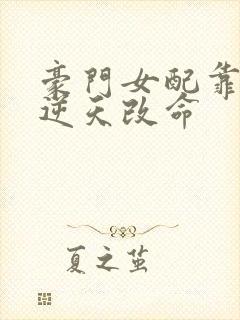 豪門女配靠
逆天改命
夏之茧